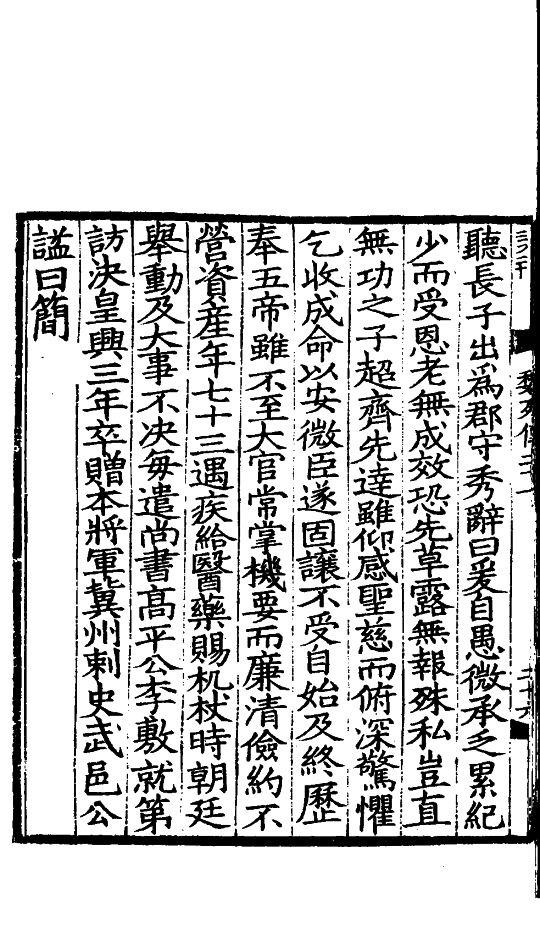 聽長子出爲郡守秀辭曰爰自愚微承乏累紀
少而受恩老無成效恐先草露無報殊私豈直
無功之子超齊先達雖仰感聖慈而俯深驚懼
乞收成命以安微臣遂固讓不受自始及終歷
奉五帝雖不至大官常掌機要而廉清儉約不
營資產年七十三遇疾給醫藥賜杖杖時朝廷
舉動及大事不決每遣尚書高平公李敷就第
訪决皇興三年卒贈本將軍冀州刺史武邑公
諡曰簡